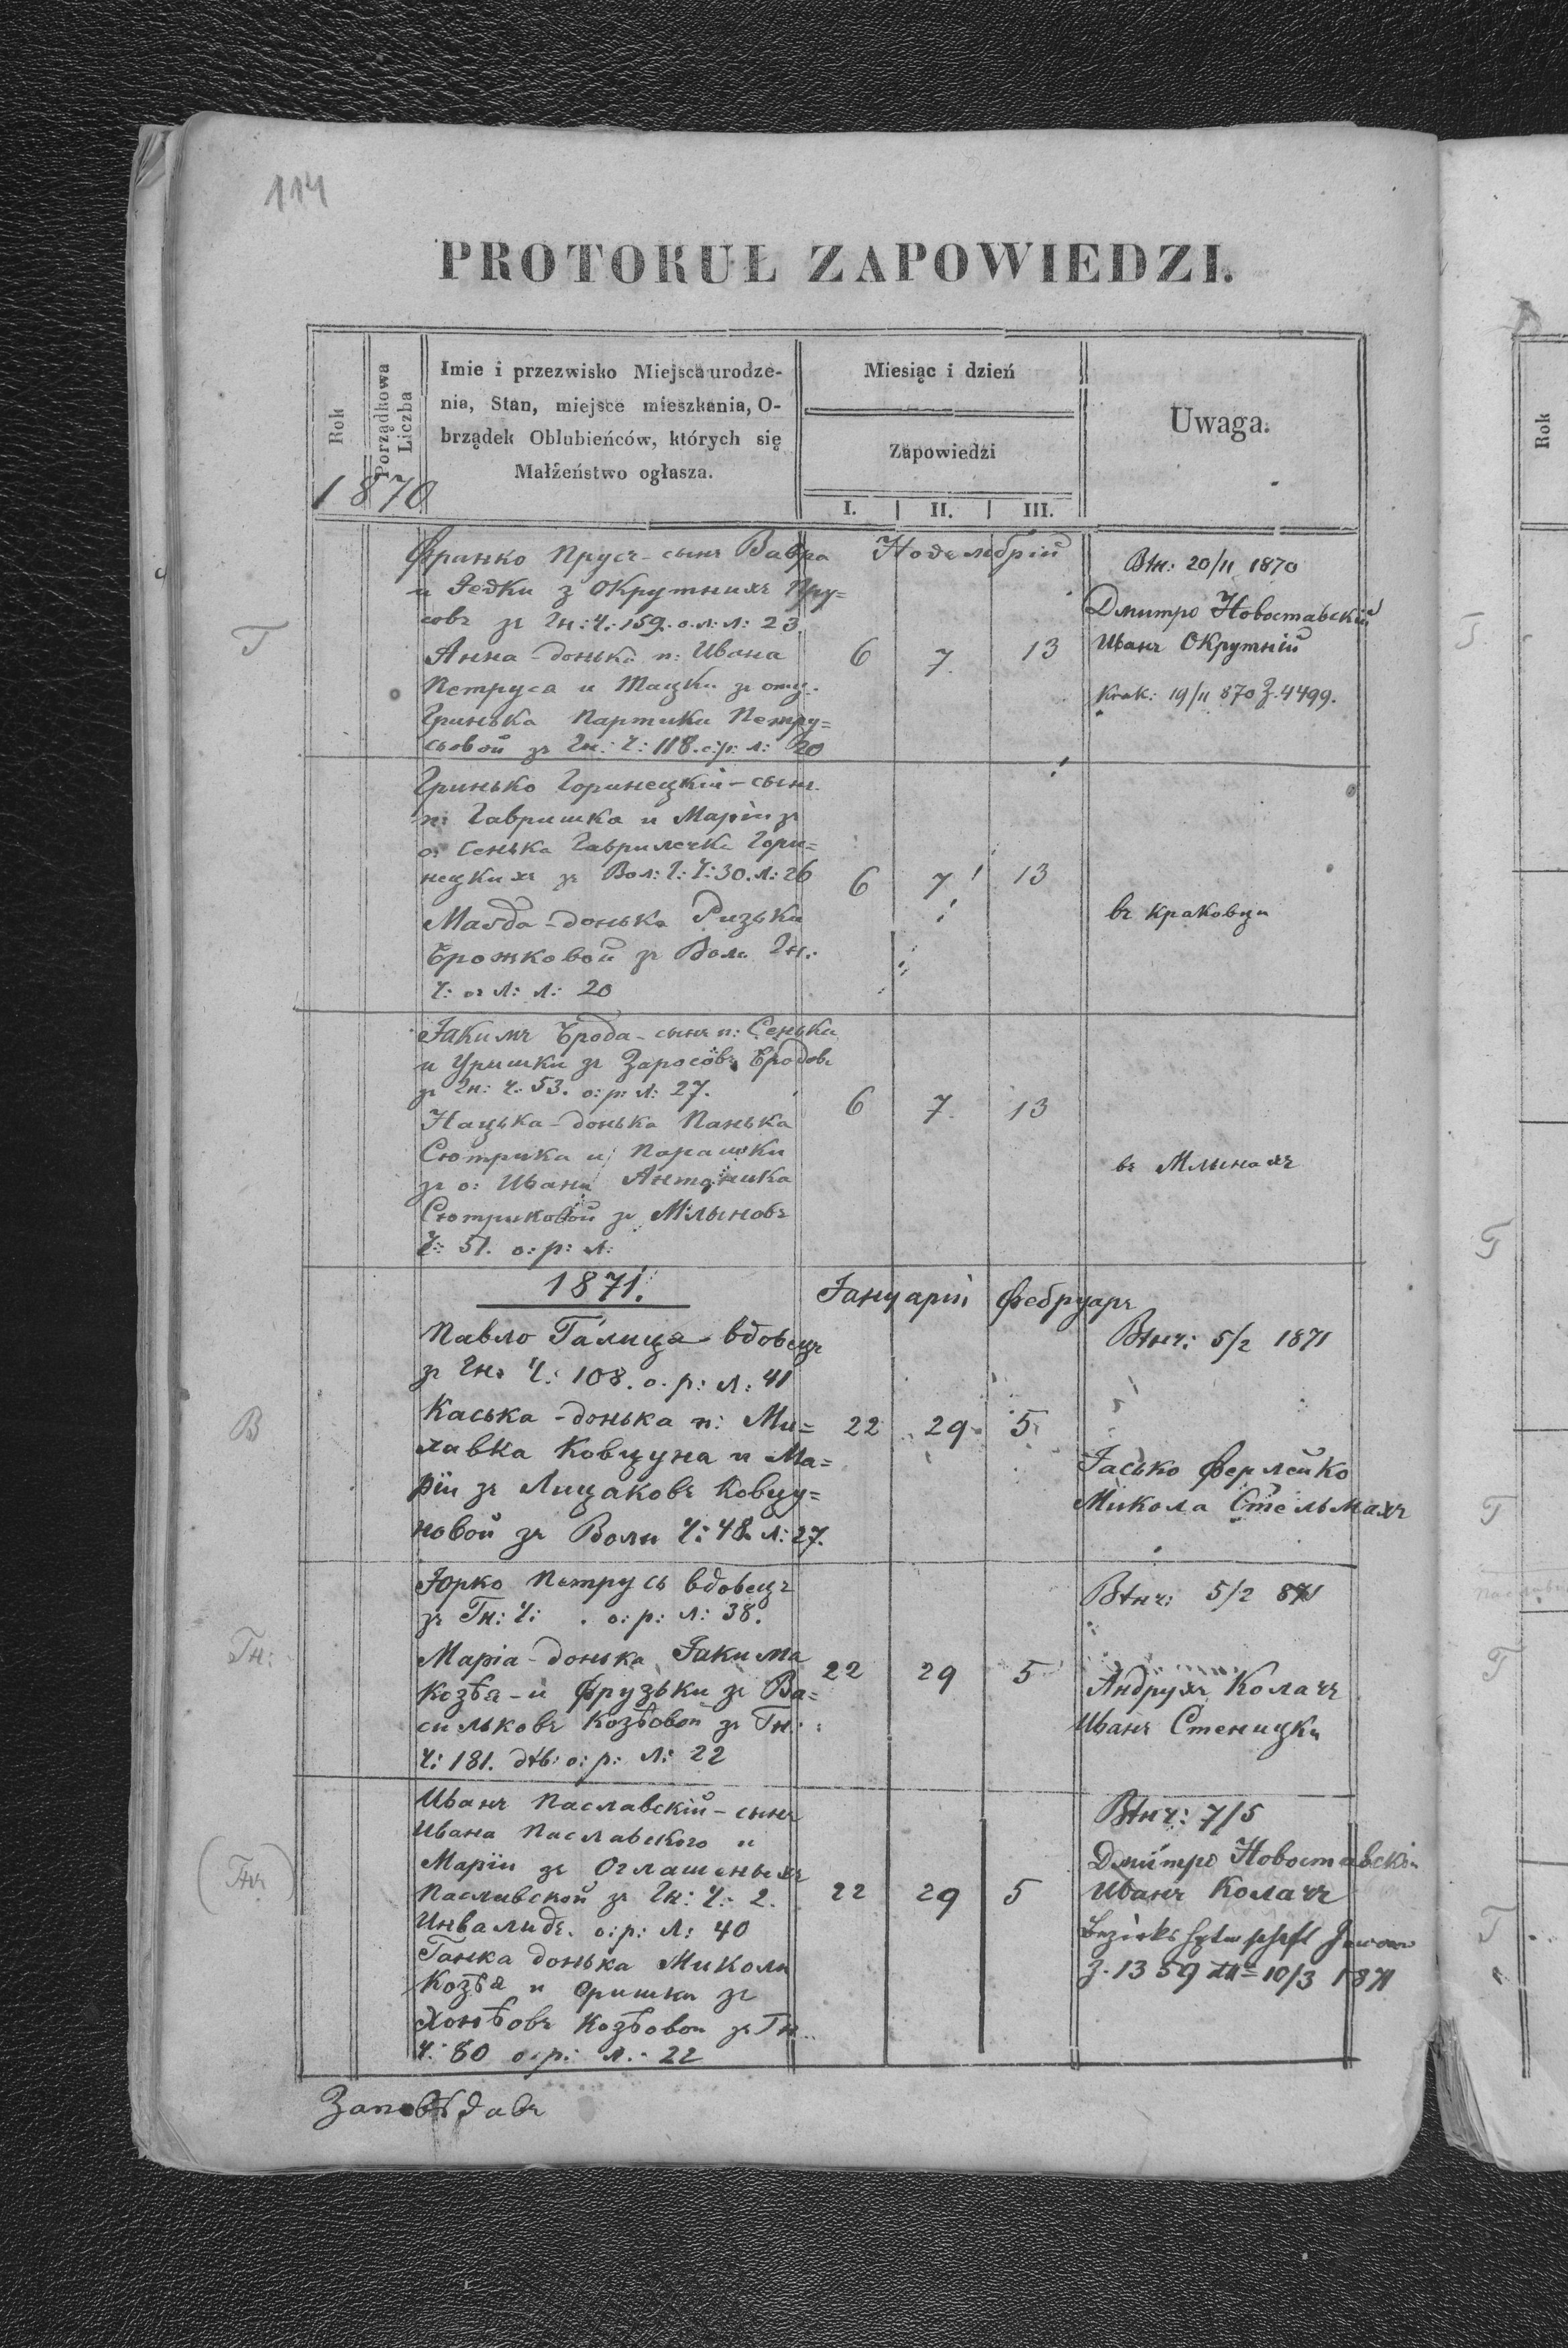 114
PROTOKUŁ ZAPOWIEDZI.
Rok
Porządkowa Liczba
Imie i przezwisko Miejsca urodze-
nia, Stan, miejsce mieszkania, O-
brządek Oblubieńców, których się
Małżeństwo ogłasza.
Miesiąc i dzień
Zapowiedzi
I. II. III.
Uwaga.
Rok
1870
Франко Прусъ - сынъ Вавра
и Федки з Окрутнихъ Пру=
совъ зъ Гн: Ч: 159. о. л: 23
Анна - донька п: Ивана
Петруса и Мацки зъ отц.
Гринька Партики Петру=
сьовой зъ Гн: Ч: 118. о: р: л: 20
Новембрій
6 7. 13
Вѣн: 20/11 1870
Дмитро Новоставскій
Иванъ Окрутній
Krak: 19/11 870 Z. 4499.
Г
Гринько Горинецкій - сынъ
п: Гавришка и Маріи зъ
о: Сенька Гаврилечка Гори=
нецкихъ зъ Вол: Г: Ч: 30. л: 26
Магда - донька Рузьки
Брожковой зъ Воли Гн:
Ч: л: 20
6 7 13
въ Краковци
Іакимъ Брода - сынъ п: Сеньки
и Уришки зъ Заросовъ Бродовъ
зъ Гн: Ч: 53. о: р: л: 27.
Нацька - донька Панька
Сютрика и Парашки
зъ о: Ивана Антоника
Сютриковой зъ Млыновъ
Ч: 51. о: р: л:
6 7. 13
въ Млынахъ
1871.
Іануарій Фебруаръ
Павло Галица вдовецъ
зъ Гн: Ч: 108. о. р: л: 41
Каська - донька п: Ми=
хавка Ковцуна и Ма=
ріи зъ Лищаковъ Ковцу=
новой зъ Воли Ч: 48. л: 27.
22 29 5
Вѣнч: 5/2 1871
Іасько Ферлейко
Микола Стельмахъ
В
Юрко Петрусь вдовецъ
зъ Гн: Ч: . о: р: л: 38.
Маріа - донька Іакима
Козѣя - и Фрузьки зъ Ва=
сильковъ Козѣовой зъ Гн:
Ч: 181. дѣв: о: р: л: 22
22 29 5
Вѣнч: 5/2 871
Андрухъ Колачъ
Иванъ Стеницки
Гн:
Иванъ Паславскій - сынъ
Ивана Паславского и
Маріи зъ Оглашеныхъ
Паславской зъ Гн: Ч: 2.
Инвалидъ. о: р: л: 40
Ганка донька Миколи
Козѣя и Оришки зъ
Хонѣовъ Козѣовой зъ Гн
Ч: 80 о: р: л: 22
22 29 5
Вѣнч: 7/5
Дмитро Новоставскій
Иванъ Колачъ
Z. 1359 10/3 1871
Заповѣдавъ